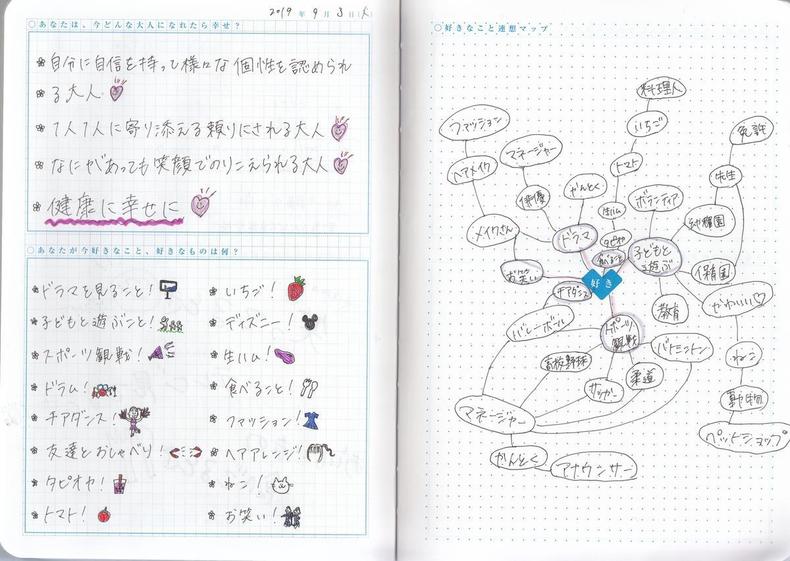 2019年 9月 3日(火)
○あなたは、今どんな大人になれたら幸せ?
自分に自信を持って様々な個性を認められ
る大人
1人1人に寄り添える頼りにされる大人
なにがあっても笑顔でのりこえられる大人
健康に幸せに
○あなたが今好きなこと、好きなものは何?
ドラマを見ること!
子どもと遊ぶこと!
スポーツ観戦!
ドラム!
チアダンス!
友達とおしゃべり!
タピオカ!
トマト!
いちご!
ディズニー!
生ハム!
食べること!
ファッション!
ヘアアレンジ!
ねこ!
お笑い!
○好きなこと連想マップ
料理人
いちご
トマト
生ハム
タピオカ
食べること
ファッション
ヘアメイク
メイクさん
お笑い
マネージャー
俳優
かんとく
ドラマ
ボランティア
子どもと
遊ぶ
免許
先生
幼稚園
保育園
教育
かわいい♡
ねこ
動物
ペットショップ
好き
チアダンス
スポーツ
観戦
バレーボール
高校野球
サッカー
柔道
バトミントン
マネージャー
かんとく
アナウンサー